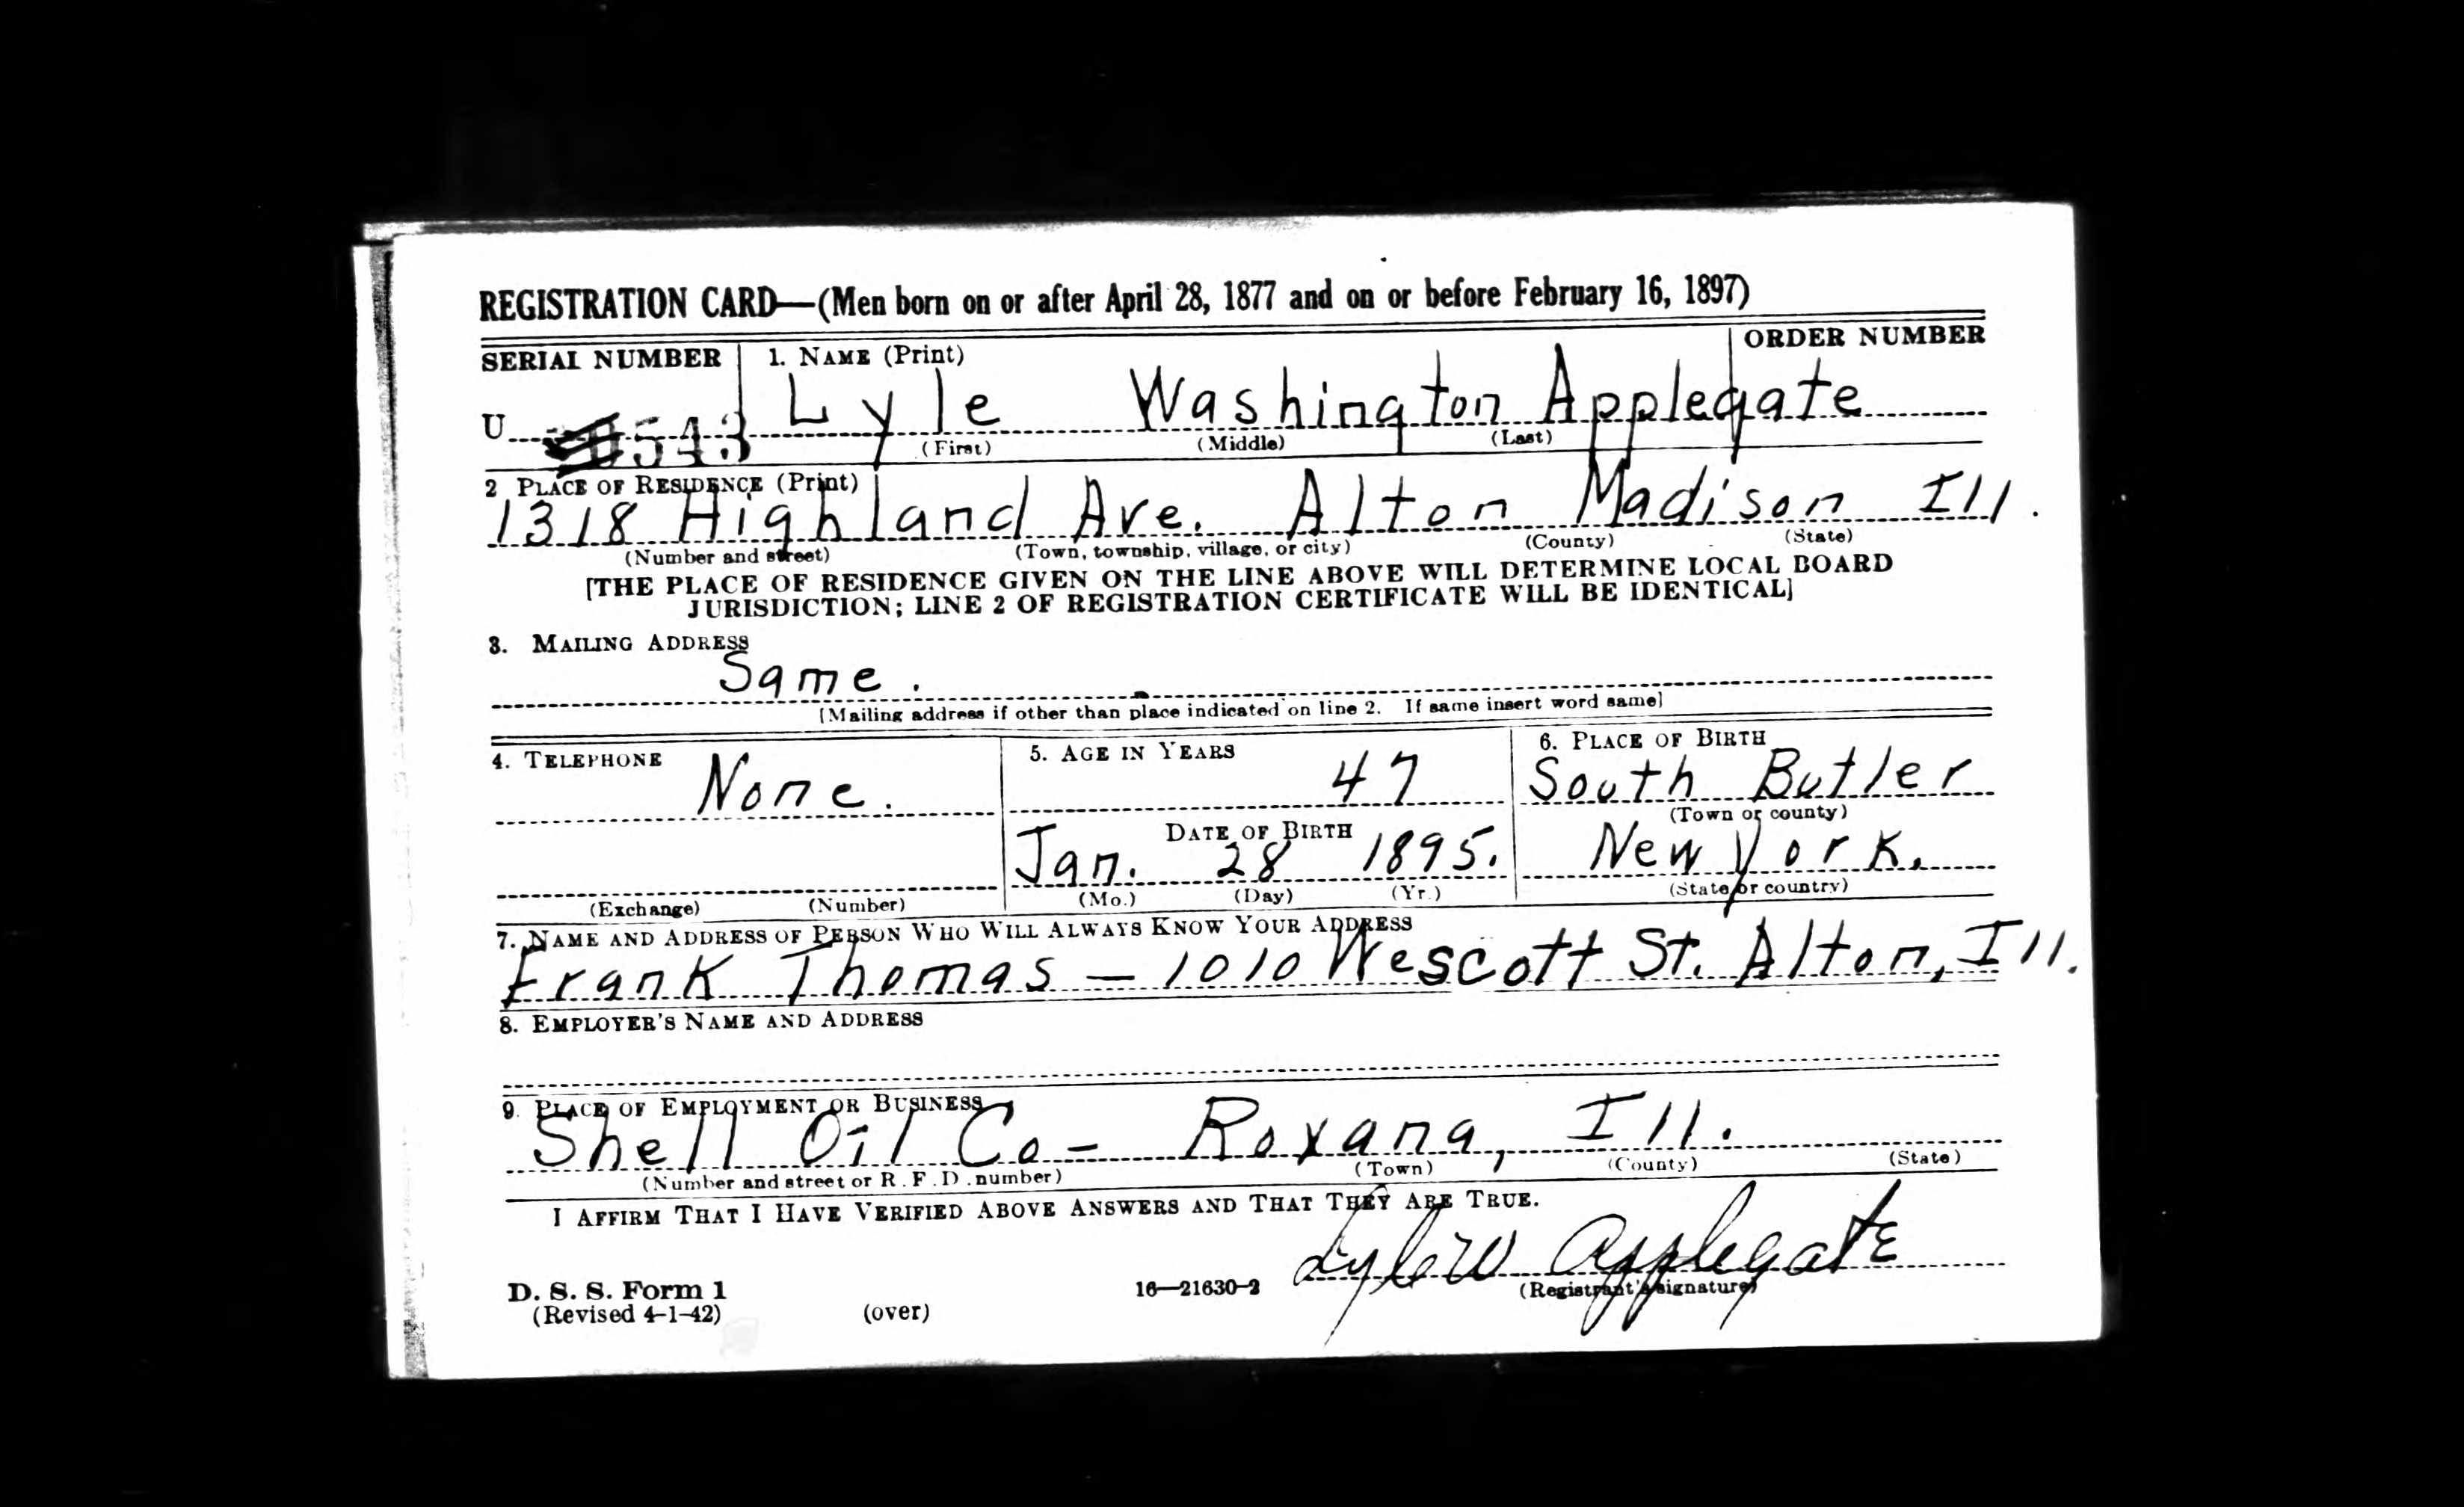 REGISTRATION CARD—(Men born on or after April 28, 1877 and on or before February 16, 1897)
SERIAL NUMBER 1. NAME (Print) ORDER NUMBER
U 543 Lyle Washington Applegate
(First) (Middle) (Last)
2 PLACE OF RESIDENCE (Print)
1318 Highland Ave. Alton Madison Ill.
(Number and street) (Town, township, village, or city) (County) (State)
[THE PLACE OF RESIDENCE GIVEN ON THE LINE ABOVE WILL DETERMINE LOCAL BOARD
JURISDICTION; LINE 2 OF REGISTRATION CERTIFICATE WILL BE IDENTICAL]
3. MAILING ADDRESS
Same.
[Mailing address if other than place indicated on line 2. If same insert word same]
4. TELEPHONE 5. AGE IN YEARS 6. PLACE OF BIRTH
None. 47 South Butler
(Town or county)
DATE OF BIRTH
Jan. 28 1895. New York.
(Exchange) (Number) (Mo.) (Day) (Yr.) (State or country)
7. NAME AND ADDRESS OF PERSON WHO WILL ALWAYS KNOW YOUR ADDRESS
Frank Thomas — 1010 Wescott St. Alton, Ill.
8. EMPLOYER'S NAME AND ADDRESS
9. PLACE OF EMPLOYMENT OR BUSINESS
Shell Oil Co - Roxana, Ill.
(Number and street or R. F. D. number) (Town) (County) (State)
I AFFIRM THAT I HAVE VERIFIED ABOVE ANSWERS AND THAT THEY ARE TRUE.
Lyle W Applegate
D. S. S. Form 1 16—21630-2 (Registrant's signature)
(Revised 4-1-42) (over)